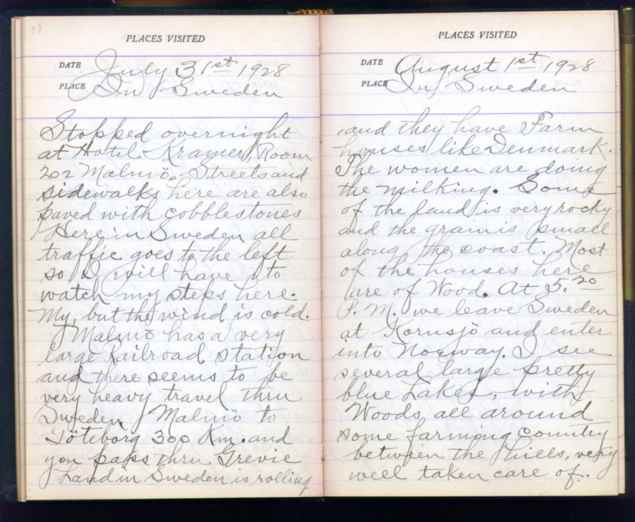 PLACES VISITED
DATE July 31st 1928
PLACE In Sweden
Stopped overnight
at Hotel Kramer, Room
202 Malmö. Streets and
sidewalks here are also
paved with cobblestones
Here in Sweden all
traffic goes to the left
so I will have to
watch my steps here.
My, but the wind is cold.
Malmö has a very
large railroad station
and there seems to be
very heavy travel thru
Sweden, Malmö to
Göteborg 300 Km. and
you pass thru Grevie
Land in Sweden is rolling
PLACES VISITED
DATE August 1st 1928
PLACE In Sweden
and they have Farm
houses like Denmark.
The women are doing
the milking. Some
of the land is very rocky
and the grain is small
along the coast. Most
of the houses here
are of Wood. At 5.20
P.M. we leave Sweden
at Kornsjö and enter
into Norway. I see
several large pretty
blue Lakes, with
Woods all around
some farming country
between the Hills, very
well taken care of.